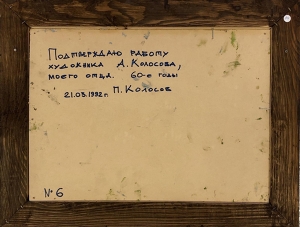 Подтверждаю работу
художника А. Колосова,
моего отца. 60-е годы
21.03.1992 г. П. Колосов
№ 6